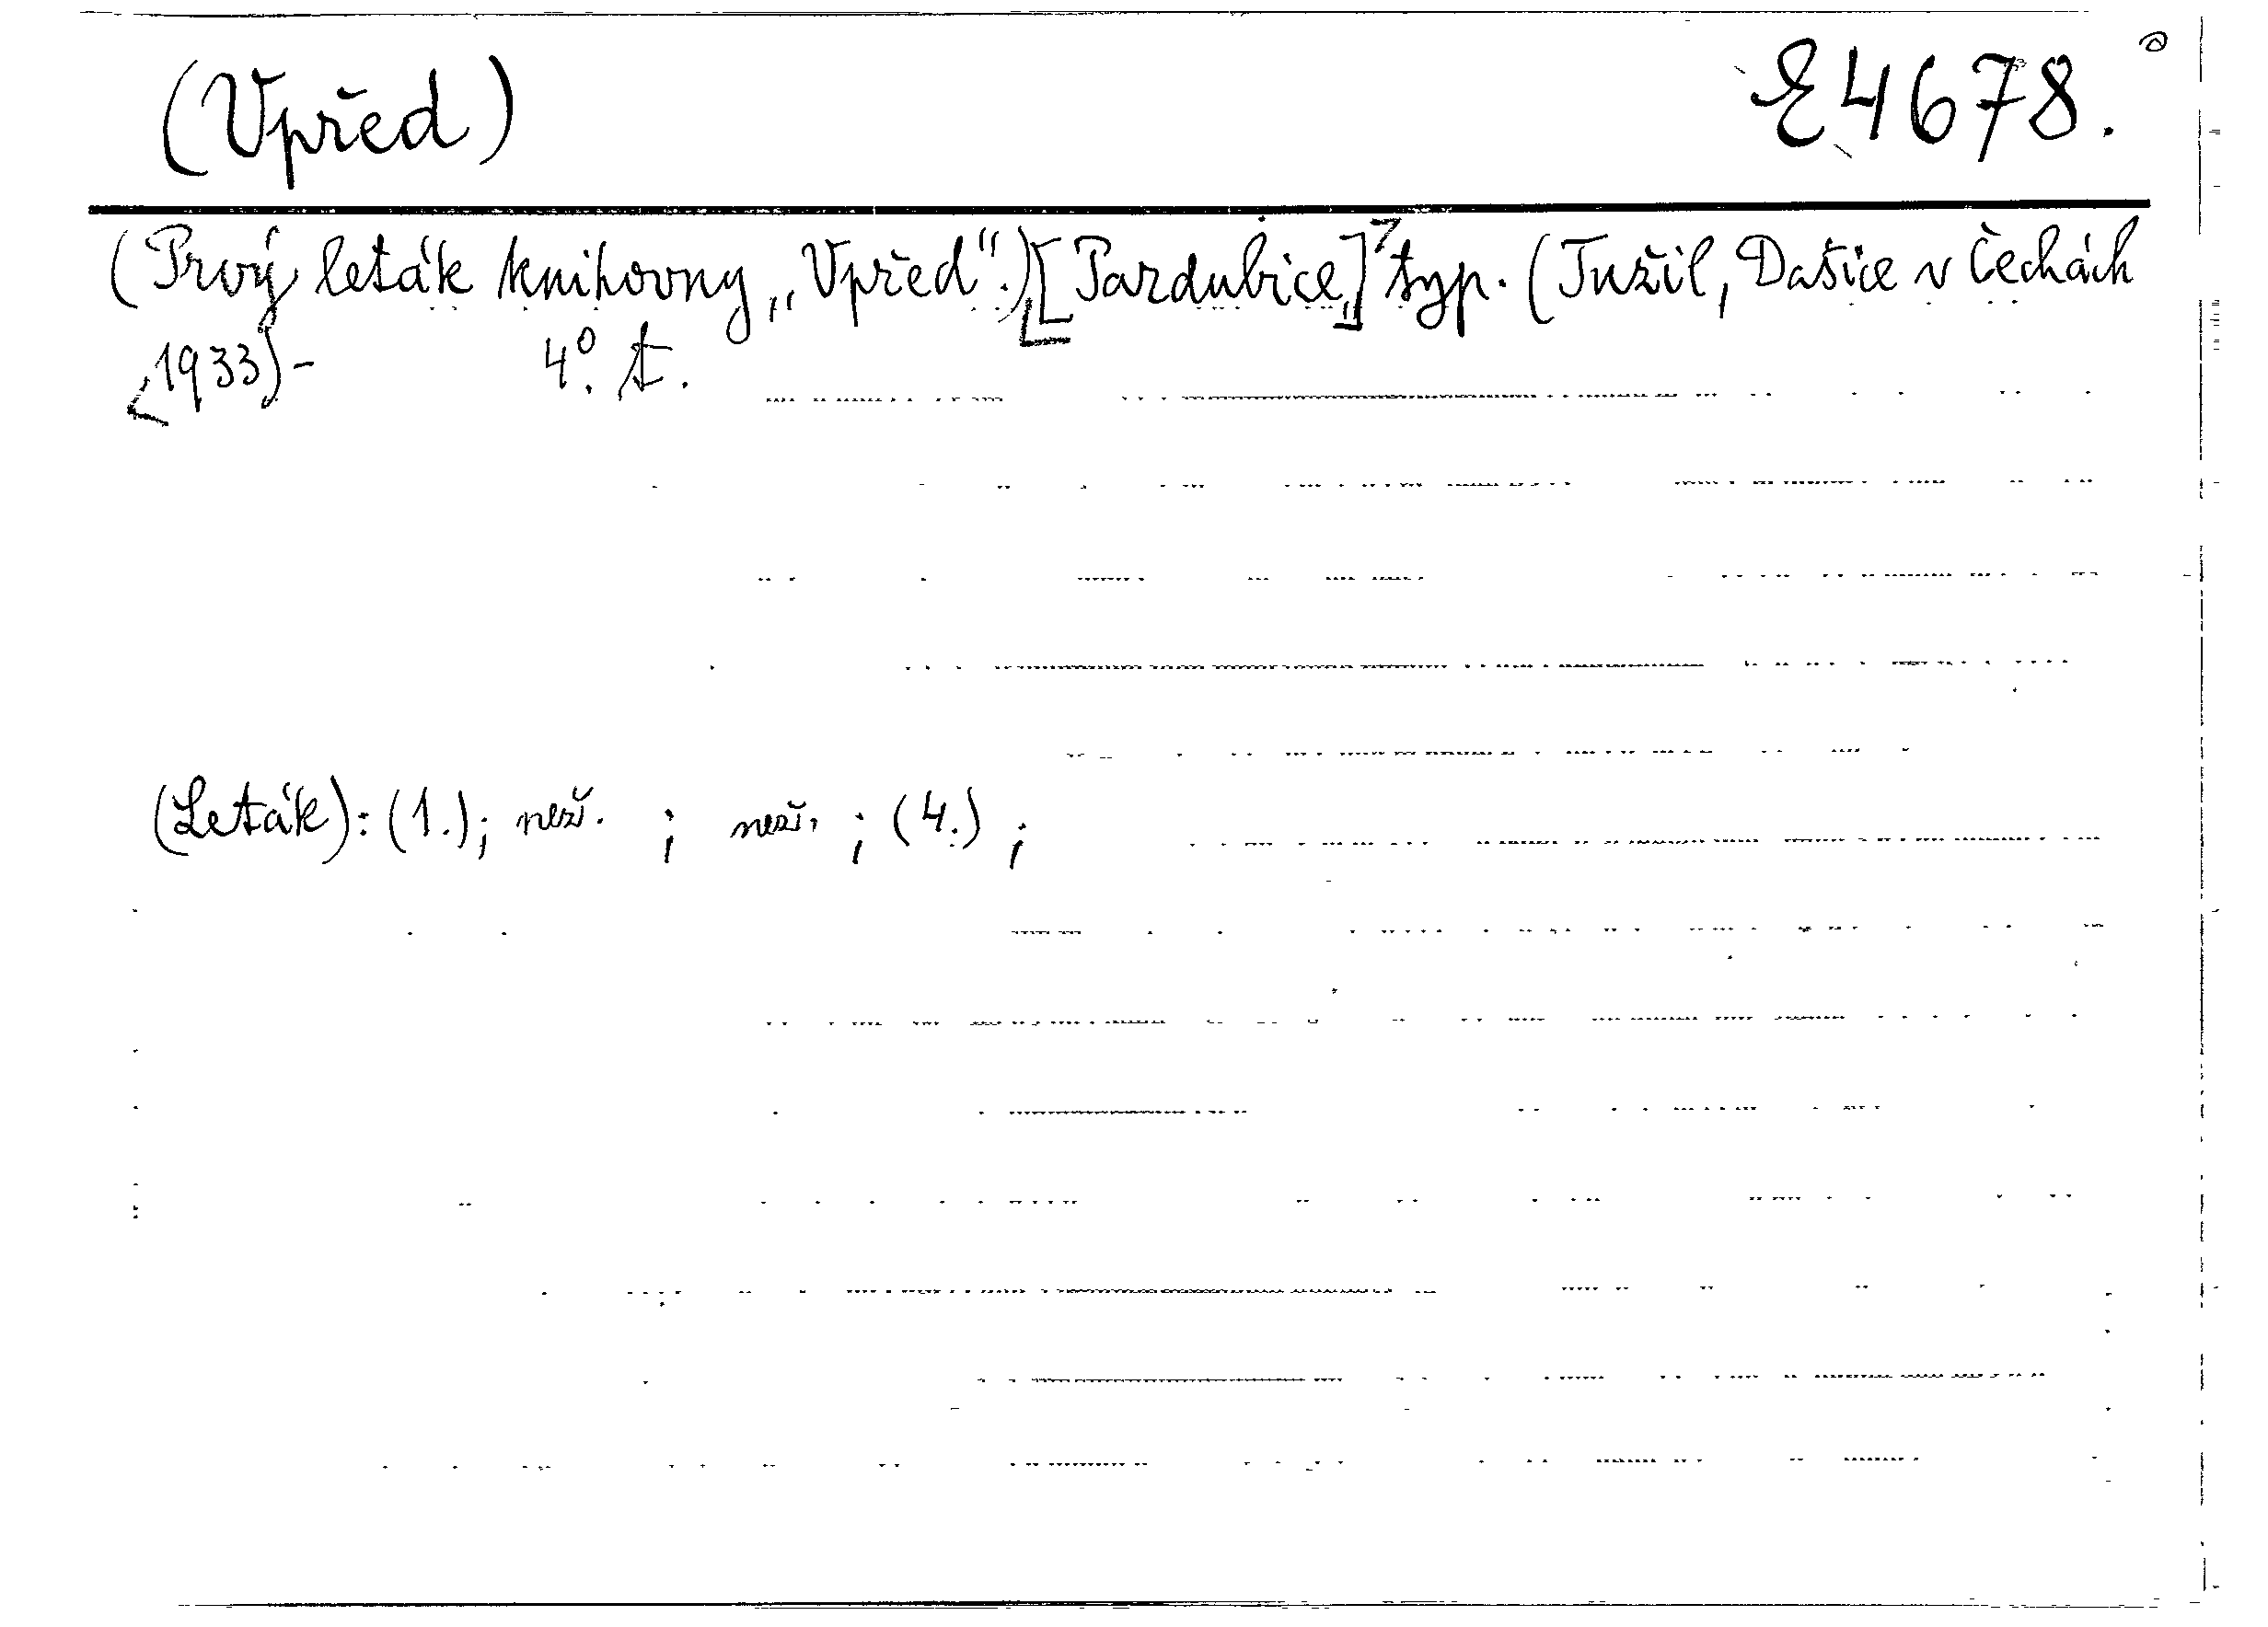 (Vpřed) E 4678.
(Prvý leták knihovny „Vpřed“.) [Pardubice] typ. (Tužil, Dašice v Čechách
1933)- 4°. t.
(Leták): (1.); neží. ; neží. ; (4.) ;